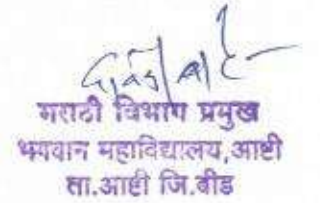 मराठी विभाग प्रमुख
भगवान महाविद्यालय,आष्टी
ता.आष्टी जि.बीड